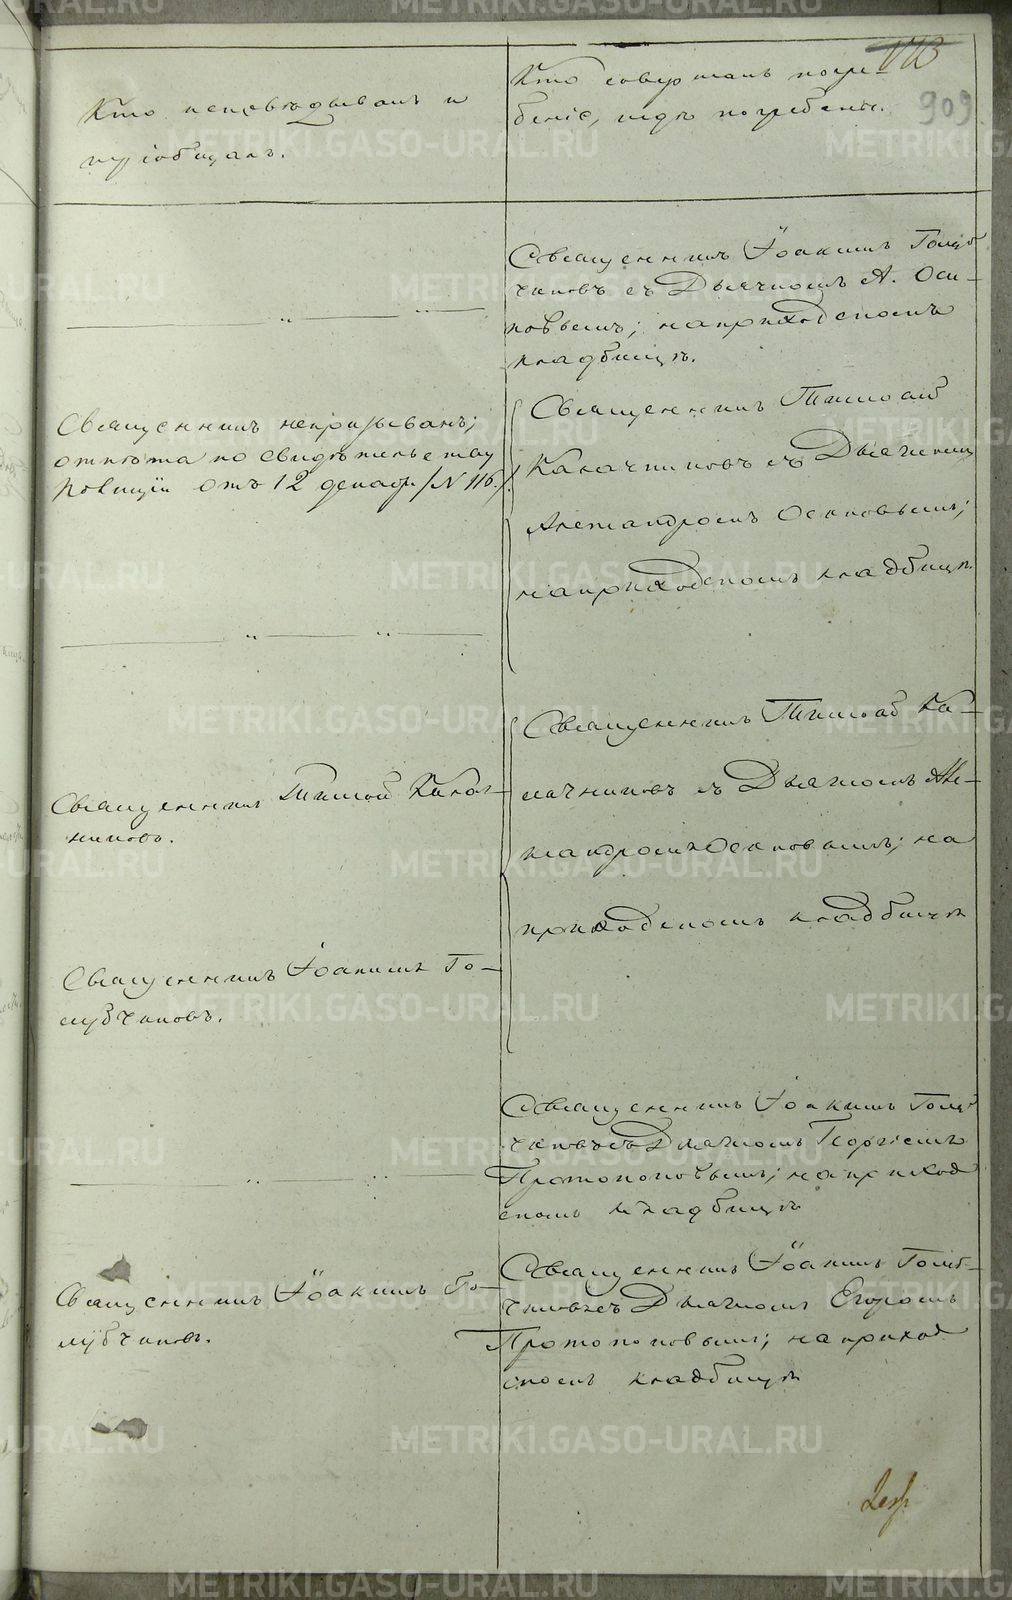 909
Кто исповѣдывалъ и
пріобщалъ.
Кто совершалъ погре-
беніе, и гдѣ погребены.
Священникъ Іоакимъ Голуб
чиковъ съ Дьячкомъ А. Оси-
повымъ; на приходскомъ
кладбищѣ.
Священникъ непризыванъ;
отпѣта по свидѣтельству
Полиціи отъ 12 декабр. /№ 116./
Священникъ Тимофей
Калачниковъ съ Дьячкомъ
Александромъ Осиповымъ;
на приходскомъ кладбищѣ
Священникъ Тимофей Калач-
никовъ.
Священникъ Тимофей Ка-
лачниковъ съ Дьячкомъ Але-
ксандромъ Осиповымъ; на
приходскомъ кладбищѣ
Священникъ Іоакимъ Го-
лубчиковъ.
Священникъ Іоакимъ Голуб
чиковъ съ Дьячкомъ Георгіемъ
Протопоповымъ; на приход
скомъ кладбищѣ
Священникъ Іоакимъ Го-
лубчиковъ.
Священникъ Іоакимъ Голуб-
чиковъ съ Дьячкомъ Егоромъ
Протопоповымъ; на приход
скомъ кладбищѣ
METRIKI.GASO-URAL.RU